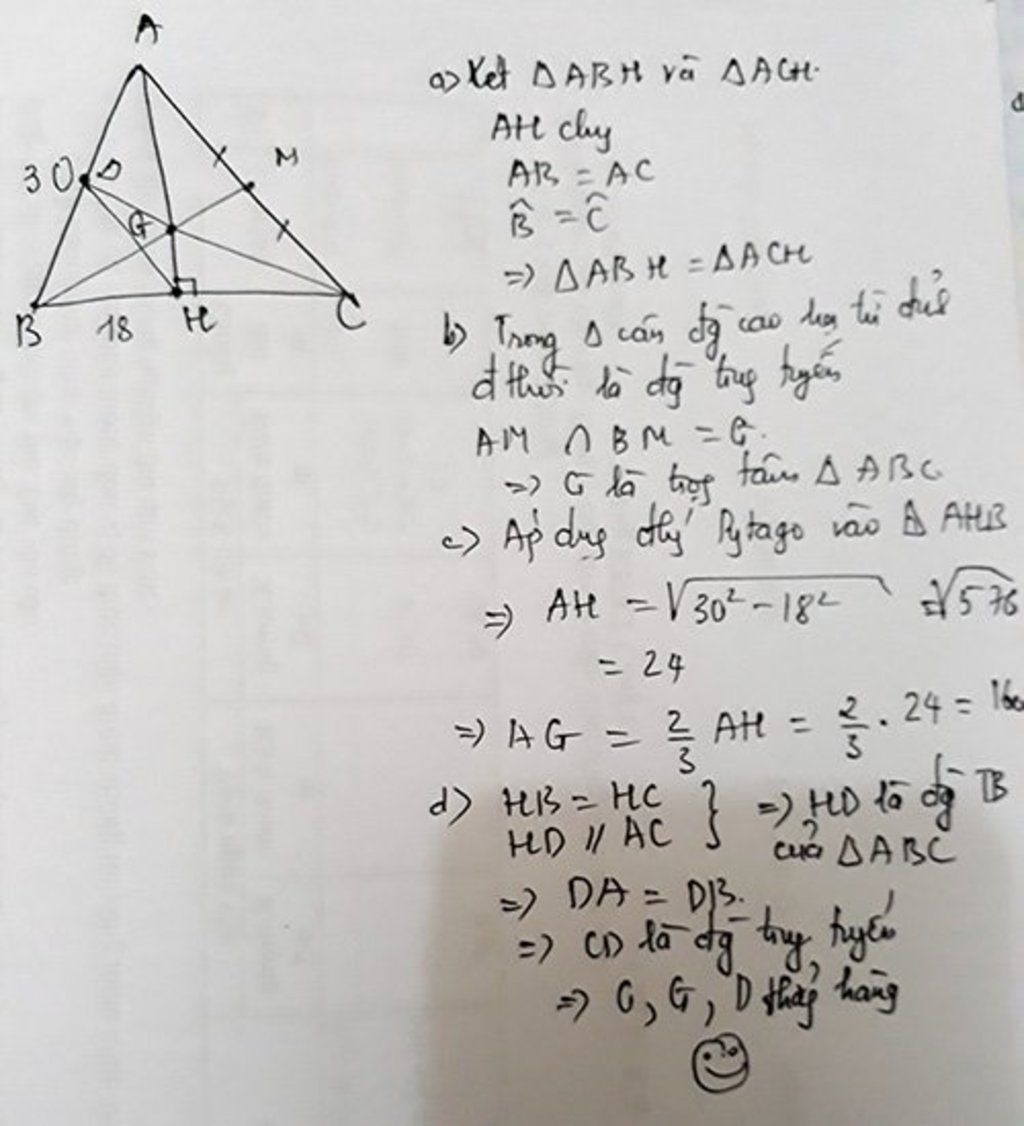 A
30
D
M
G
B
18
H
C
a) Xét △ABH và △ACH.
AH chg
AB = AC
B̂ = Ĉ
=> △ABH = △ACH
b) Trong △ cân đg cao hạ từ đỉnh
đ thời là đg trug tuyến
AM ∩ BM = G.
=> G là trọg tâm △ABC
c) Áp dụg đlý Pytago vào △AHB
=> AH = √30² - 18² = √576
= 24
=> AG = 2/3 AH = 2/3 . 24 = 16
d) HB = HC } => HD là đg TB
HD // AC của △ABC
=> DA = DB.
=> CD là đg trug tuyến
=> C, G, D thẳg hàng